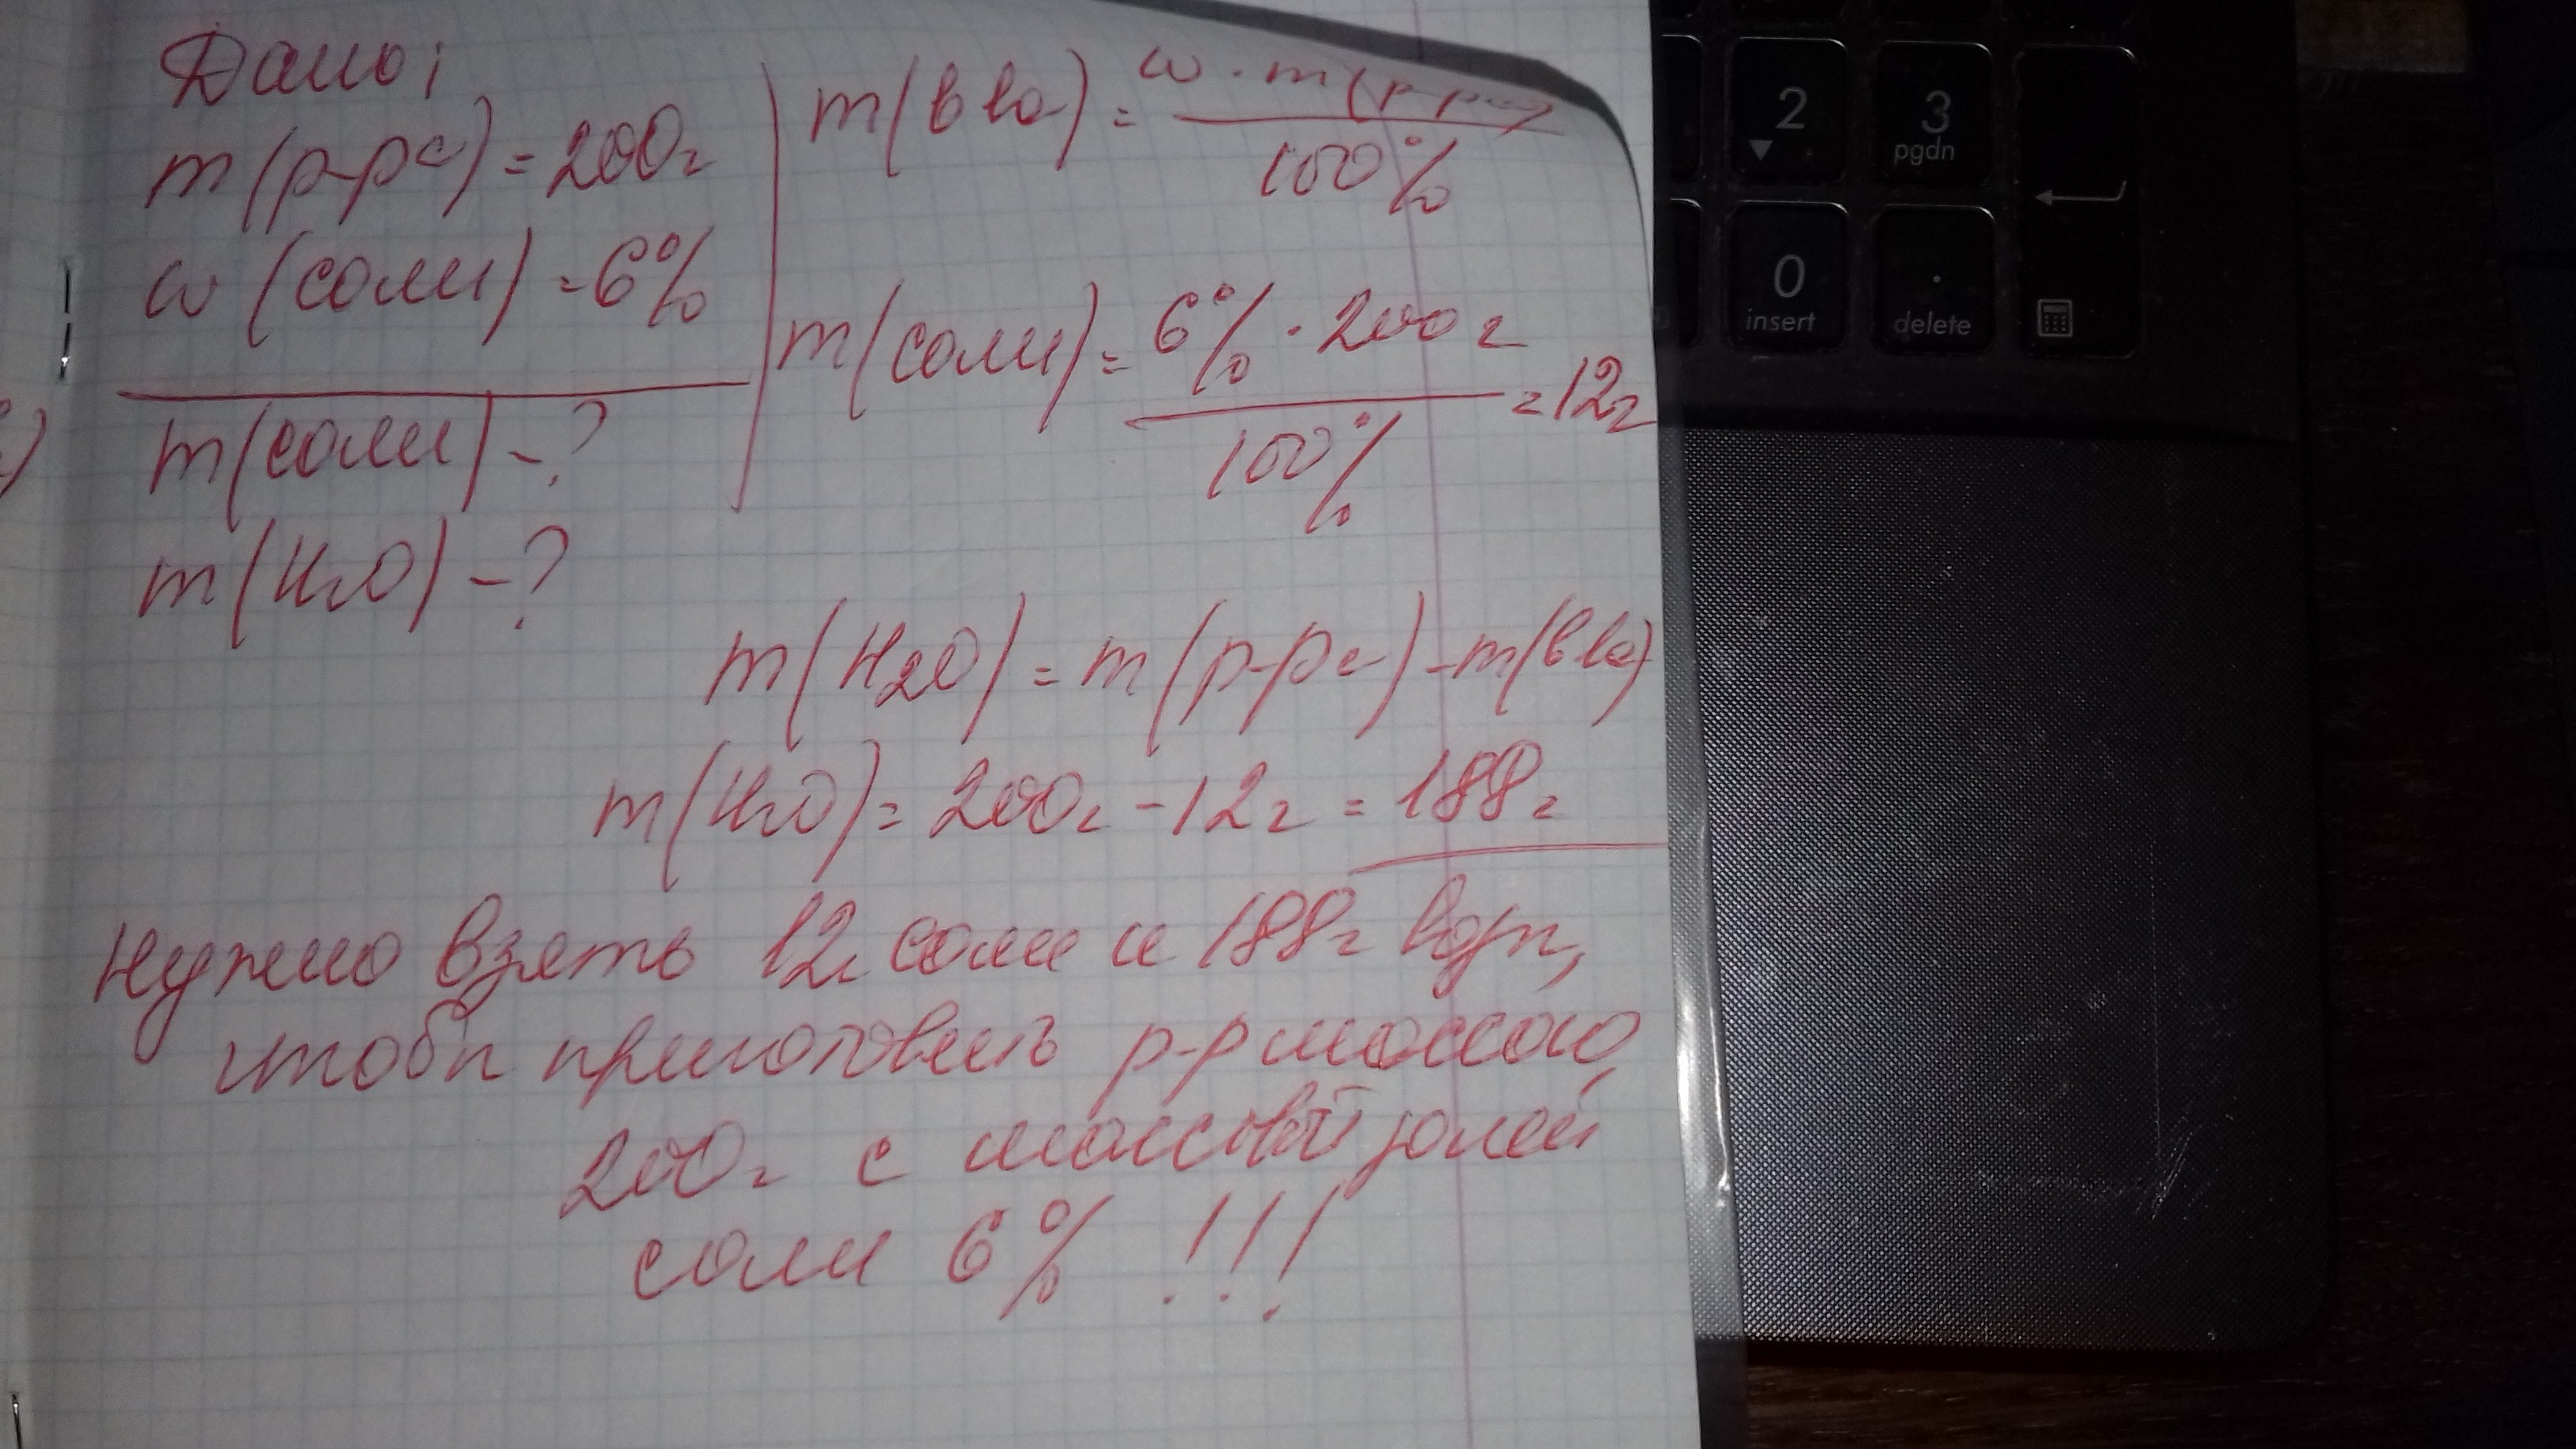 Дано:
m(р-ра) = 200г
w(соли) = 6%
m(соли) - ?
m(H2O) - ?
m(в-ва) = w · m(р-ра)
100%
m(соли) = 6% · 200г
100%
= 12г
m(H2O) = m(р-ра) - m(в-ва)
m(H2O) = 200г - 12г = 188г
Нужно взять 12г соли и 188г воды,
чтобы приготовить р-р массою
200г с массовой долей
соли 6% !!!
2
3
pgdn
0
insert
.
delete